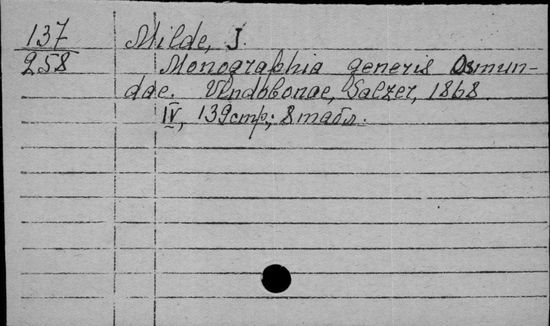 137
258
Milde, J.
Monographia generis Osmun-
dae. Vindobonae, Salzer, 1868
IV, 139 стр; 8 табл.